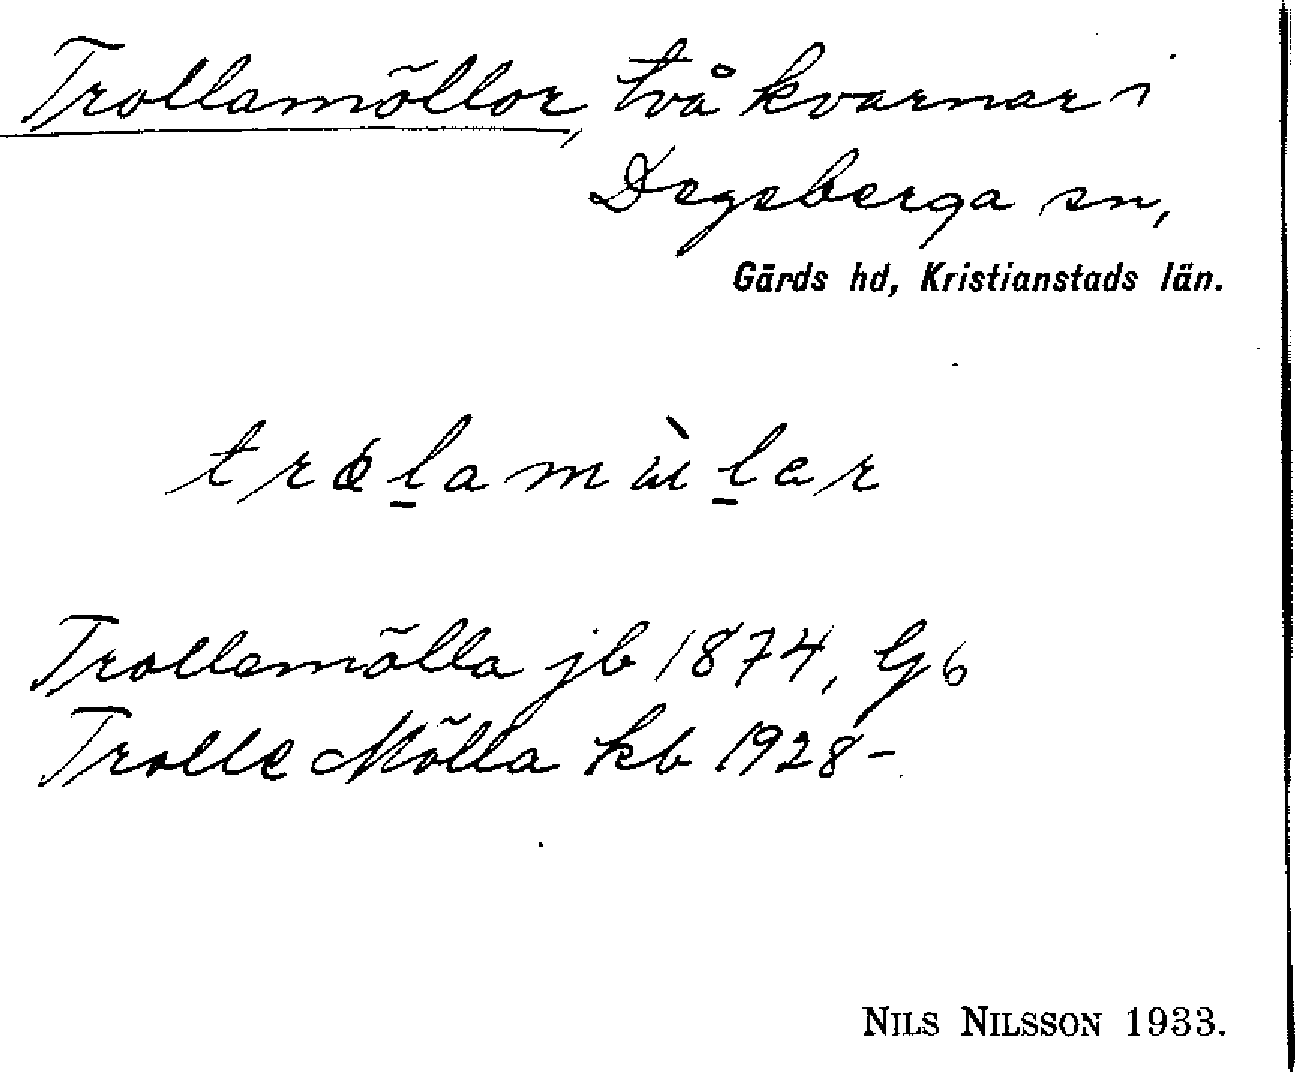 Trollamöllor, två kvarnar i
Degeberga sn,
Gärds hd, Kristianstads län.
Trollamölla jb 1874, Gb
Trolle Mölla kb 1928-
NILS NILSSON 1933.